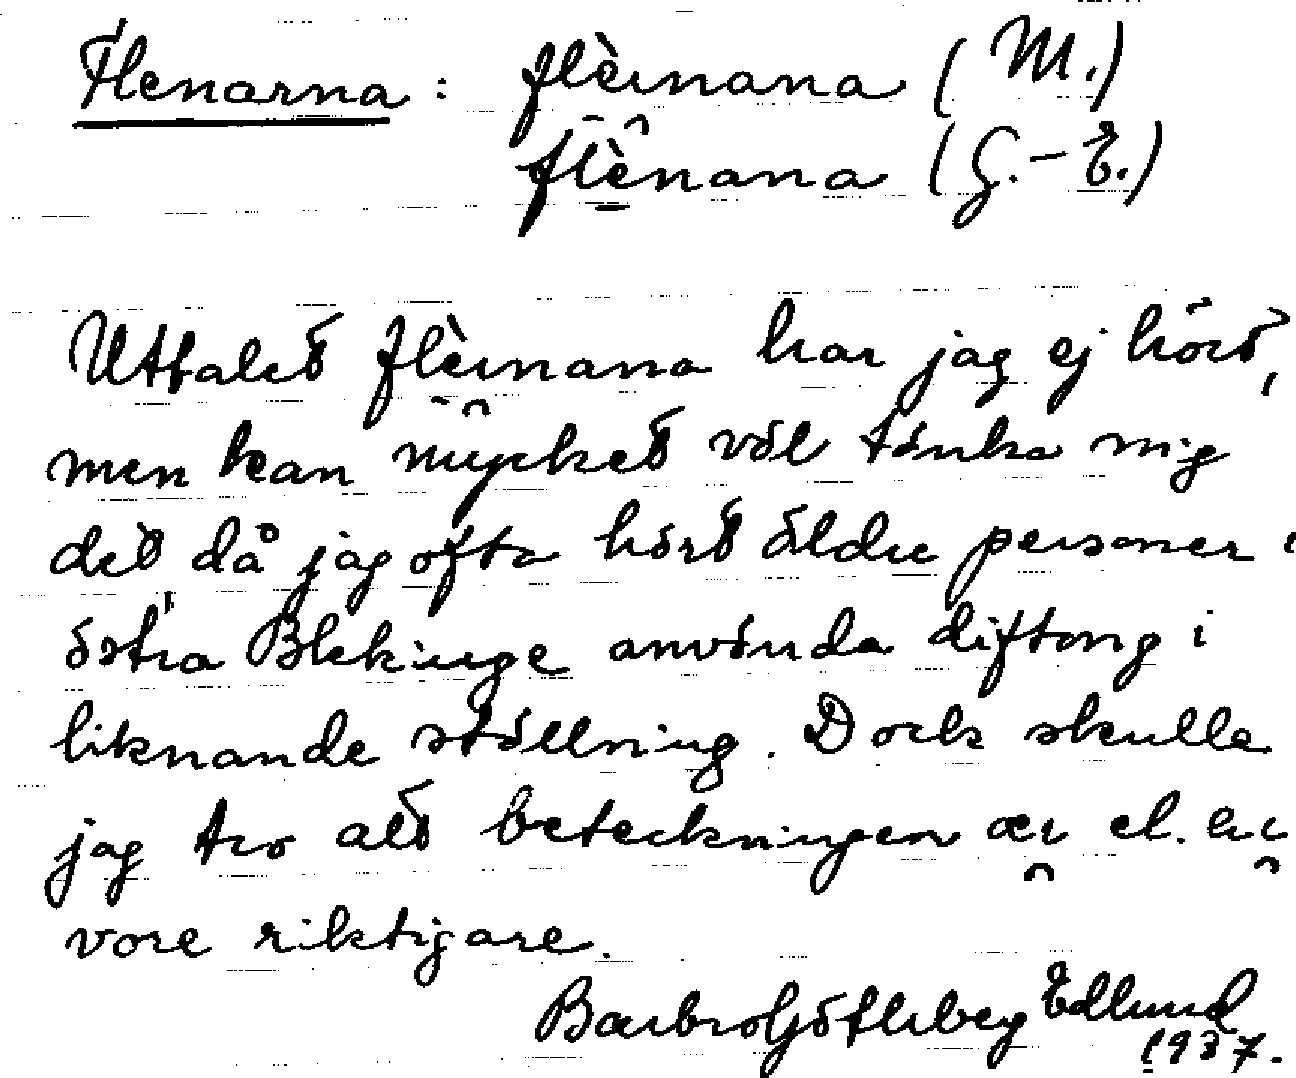 Flenarna : flèɩnana (M.)
flènana (G.-E.)
Uttalet flèɩnana har jag ej hört,
men kan mycket väl tänka mig
det då jag ofta hört äldre personer i
östra Blekinge använda diftong i
liknande ställning. Dock skulle
jag tro att beteckningen æɩ el. eɩ
vore riktigare.
Barbro Götherberg Edlund
1937.